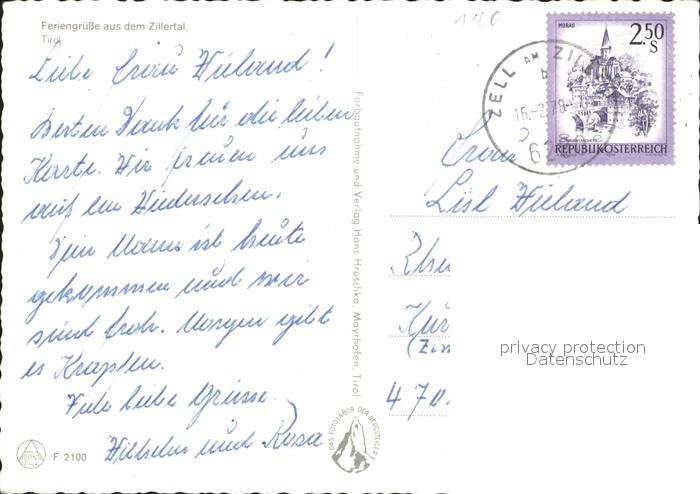 Feriengrüße aus dem Zillertal,
Tirol
Liebe Frau Wieland!
Besten Dank für die lieben
Karte. Wir freuen uns
auf ein Wiedersehen.
Dein Mann ist heute
gekommen und wir
sind froh. Morgen gibt
es Krapfen.
Viele liebe Grüsse
Wilhelm und Rosa
F 2100
Farbaufnahme und Verlag Hans Hruschka, Mayrhofen, Tirol
DAS FOTOLABOR DER BERGSTEIGER
110
MURAU
2.50
S
REPUBLIK ÖSTERREICH
ZELL AM ZILL
b
16.-2.79
62
Frau
Lisl Wieland
Rhe
Kür
470
privacy protection
Datenschutz